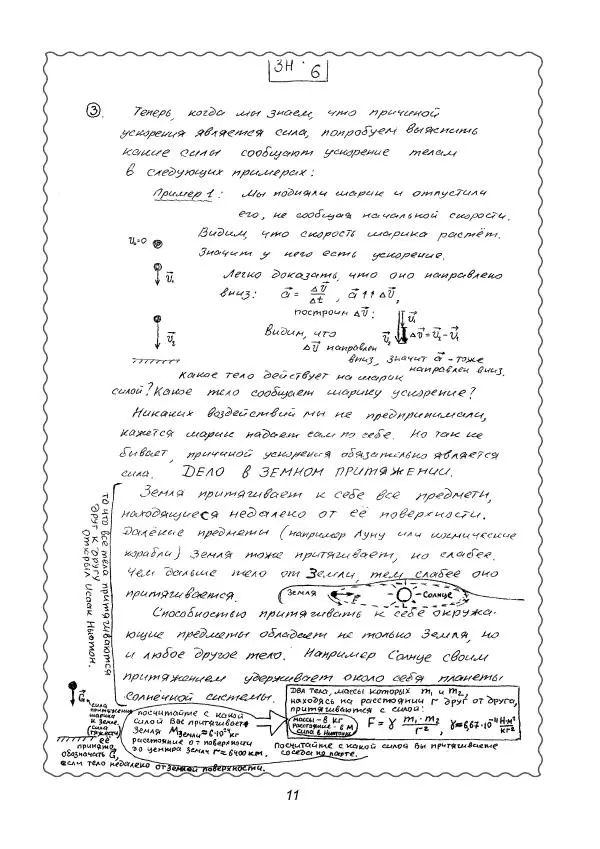 ЗН · 6
③. Теперь, когда мы знаем, что причиной
ускорения является сила, попробуем выяснить
какие силы сообщают ускорение телам
в следующих примерах:
Пример 1: Мы подняли шарик и отпустили
его, не сообщая начальной скорости.
Видим, что скорость шарика растёт.
Значит у него есть ускорение.
Легко доказать, что оно направлено
вниз: a⃗ = Δv⃗/Δt, a⃗↑↑Δv⃗,
построим Δv⃗:
Видим, что
Δv⃗ направлен
вниз, значит a⃗ - тоже
направлен вниз.
v₀=0
v⃗₁
v⃗₂
v⃗₁
v⃗₂
Δv⃗=v⃗₂-v⃗₁
Какое тело действует на шарик
силой? Какое тело сообщает шарику ускорение?
Никаких воздействий мы не предпринимали,
кажется шарик падает сам по себе. Но так не
бывает, причиной ускорения обязательно является
сила. ДЕЛО В ЗЕМНОМ ПРИТЯЖЕНИИ.
Земля притягивает к себе все предметы,
находящиеся недалеко от её поверхности.
Далёкие предметы (например Луну или космические
корабли) Земля тоже притягивает, но слабее.
Чем дальше тело от Земли, тем слабее оно
притягивается.
Земля
Солнце
Способностью притягивать к себе окружа-
ющие предметы обладает не только Земля, но
и любое другое тело. Например Солнце своим
притяжением удерживает около себя планеты
солнечной системы.
То что все тела притягиваются
друг к другу
открыл Исаак Ньютон.
G⃗
сила
притяжения
шарика
к Земле.
(сила
тяжести)
её
принято
обозначать G⃗,
если тело недалеко от земной поверхности.
посчитайте с какой
силой Вас притягивает
Земля Mземли=6·10²⁴кг
расстояние от поверхности
до центра Земли r=6400км.
Два тела, массы которых m₁ и m₂,
находясь на расстоянии r друг от друга,
притягиваются с силой:
массы - в кг
расстояние - в м
сила в Ньютонах
F = γ m₁·m₂/r², γ=6,67·10⁻¹¹ Н·м²/кг²
Посчитайте с какой силой Вы притягиваете
соседа по парте.
11